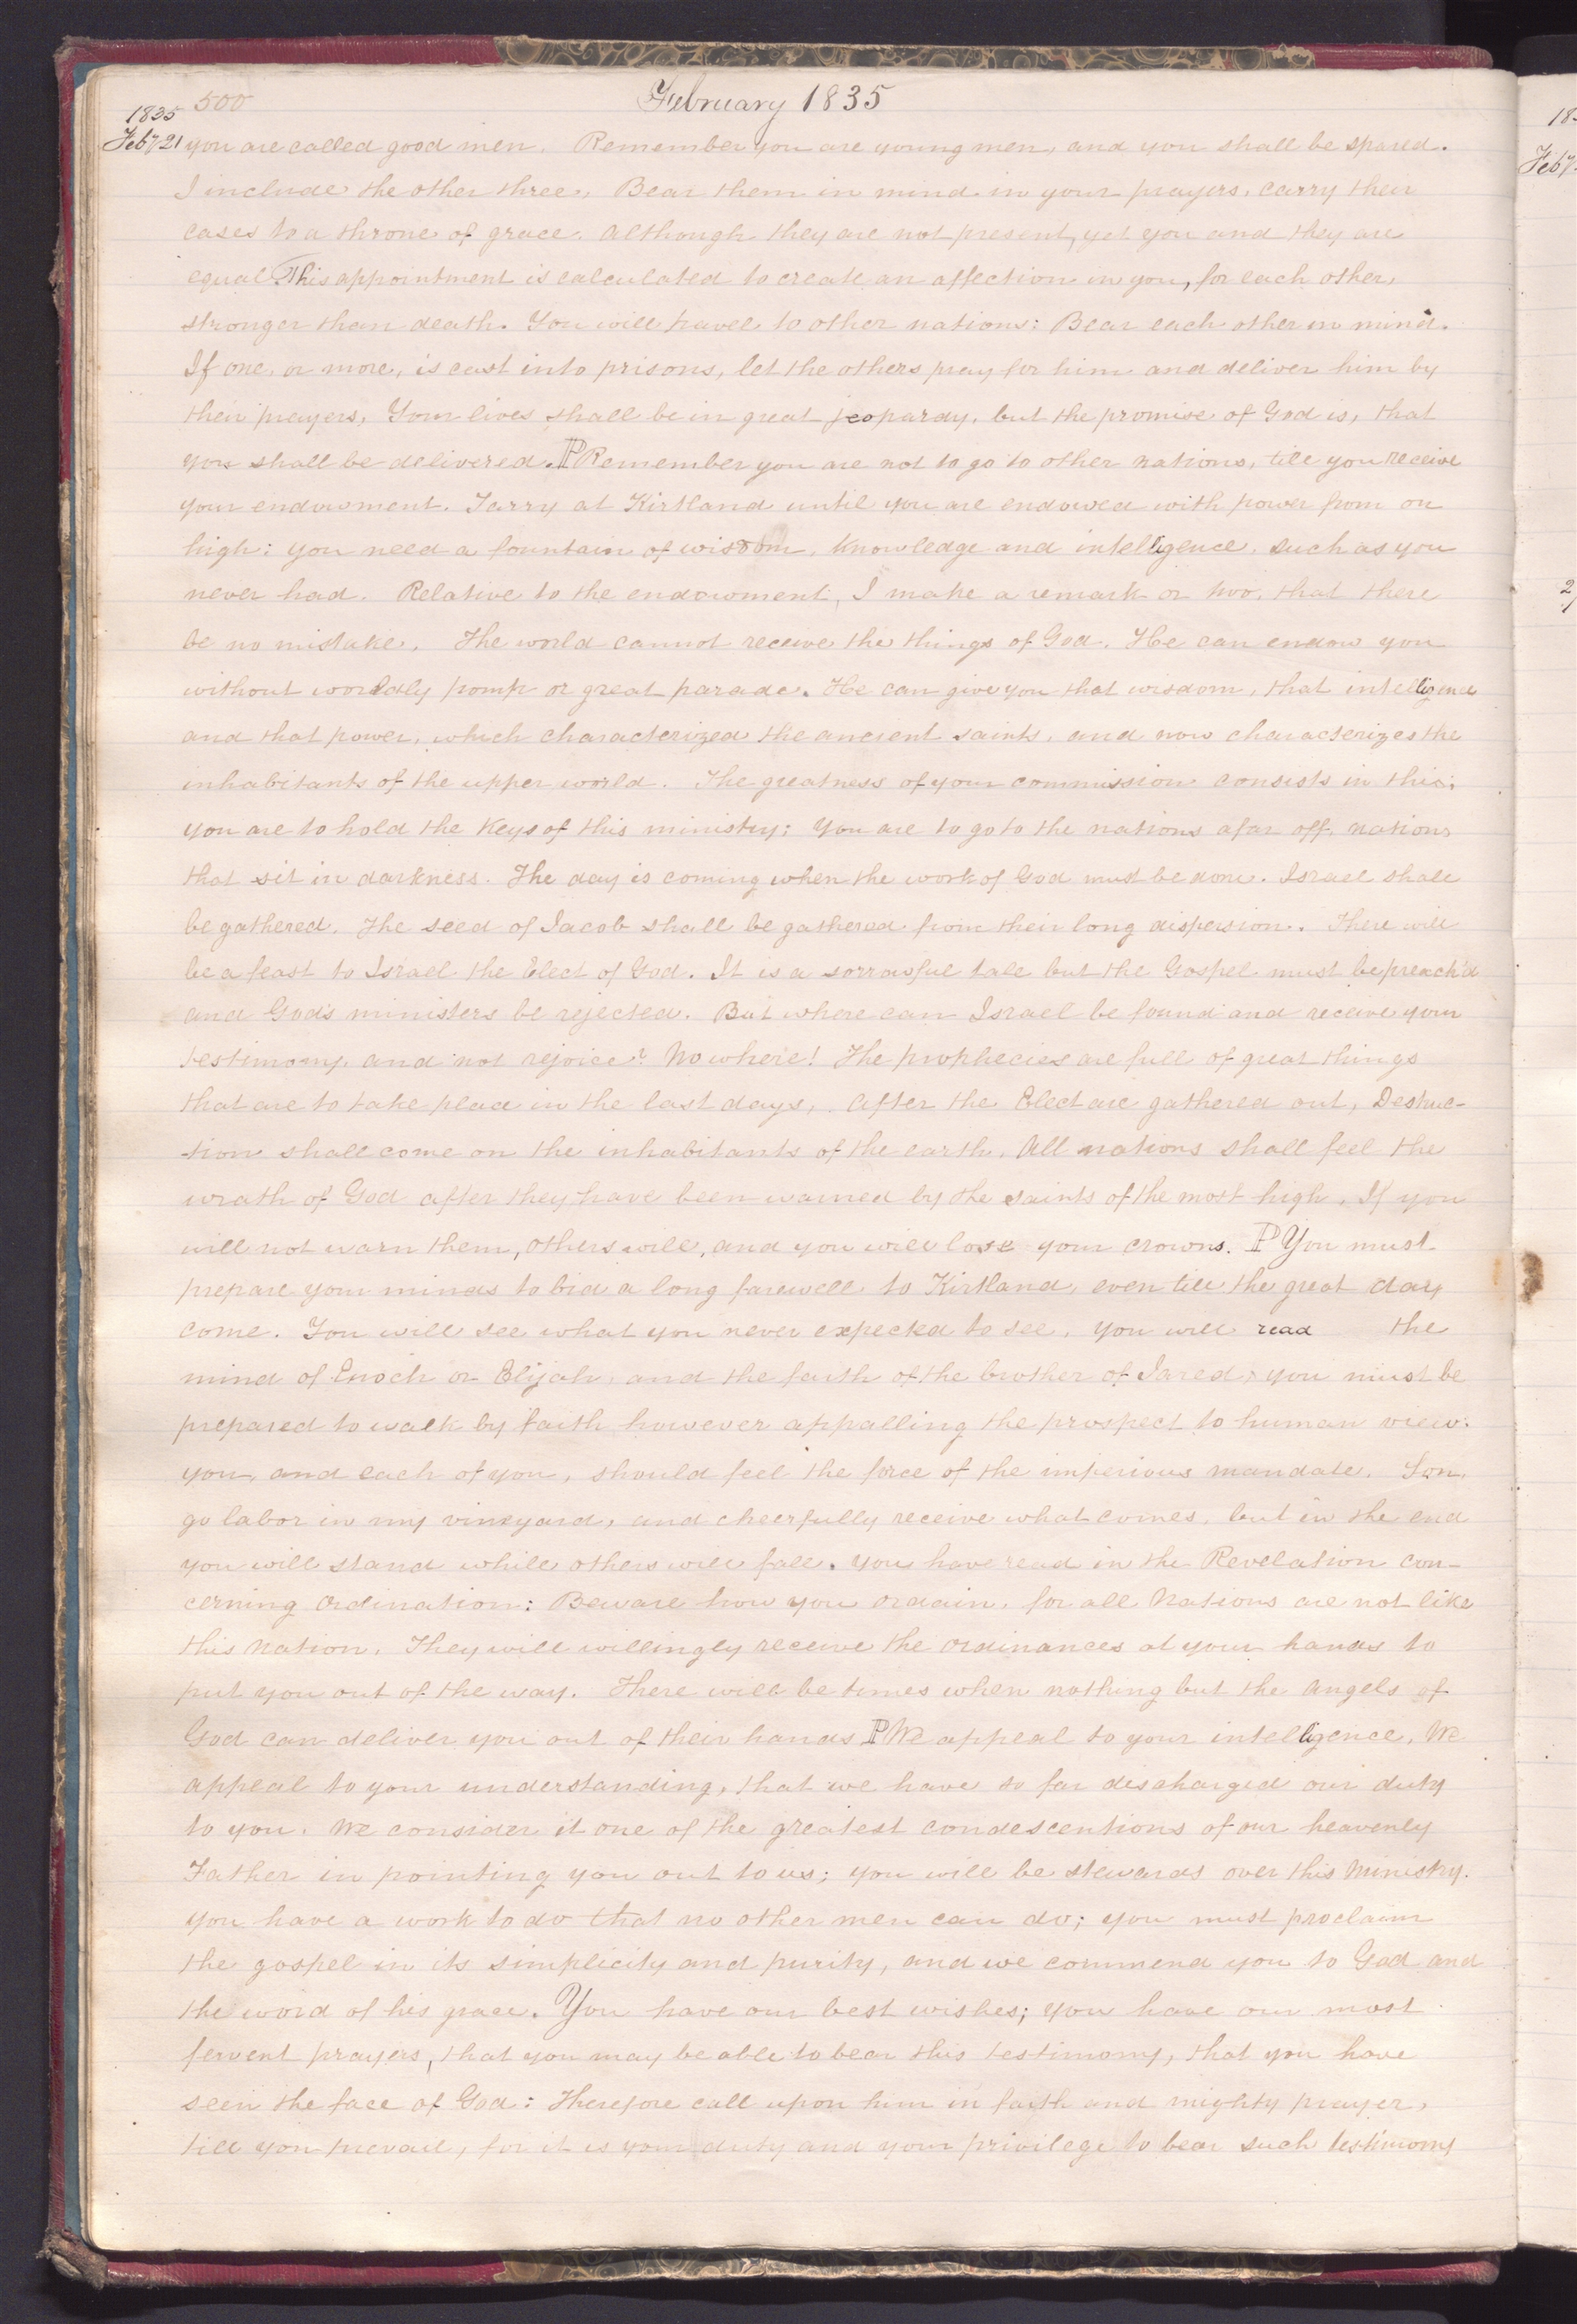 500
February 1835
1835
Feb<sup>y</sup> 21 you are called good men. Remember you are young men, and you shall be spared.
I include the other three. Bear them in mind in your prayers, carry their
cases to a throne of grace. Although they are not present, yet you and they are
equal. This appointment is calculated to create an affection in you, for each other,
stronger than death. You will travel to other nations: Bear each other in mind.
If one, or more, is cast into prisons, let the others pray for him and deliver him by
their prayers, Your lives shall be in great jeopardy, but the promise of God is, that
you shall be delivered. P Remember you are not to go to other nations, till you receive
your endowment. Tarry at Kirtland until you are endowed with power from on
high: you need a fountain of wisdom, knowledge and intelligence, such as you
never had. Relative to the endowment, I make a remark or two, that there
be no mistake. The world cannot receive the things of God. He can endow you
without worldly pomp or great parade. He can give you that wisdom, that intelligence
and that power, which characterized the ancient saints, and now characterizes the
inhabitants of the upper world. The greatness of your commission consists in this;
you are to hold the keys of this ministry; you are to go to the nations afar off, nations
that sit in darkness. The day is coming when the work of God must be done. Israel shall
be gathered. The seed of Jacob shall be gathered from their long dispersion. There will
be a feast to Israel the Elect of God. It is a sorrowful tale but the Gospel must be preach'd
and God's ministers be rejected. But where can Israel be found and receive your
testimony, and not rejoice? No where! The prophecies are full of great things
that are to take place in the last days, After the Elect are gathered out, Destruc-
-tion shall come on the inhabitants of the earth, All nations shall feel the
wrath of God after they have been warned by the saints of the most high. If you
will not warn them, others will, and you will lose your crowns. P You must
prepare your minds to bid a long farewell to Kirtland, even till the great day
come. You will see what you never expected to see, you will read the
mind of Enoch or Elijah, and the faith of the brother of Jared, you must be
prepared to walk by faith however appalling the prospect to human view:
you, and each of you, should feel the force of the imperious mandate. Son,
go labor in my vineyard, and cheerfully receive what comes, but in the end
you will stand while others will fall. You have read in the Revelation con-
cerning ordination: Beware how you ordain, for all Nations are not like
this Nation. They will willingly receive the ordinances at your hands to
put you out of the way. There will be times when nothing but the angels of
God can deliver you out of their hands P We appeal to your intelligence, We
appeal to your understanding, that we have so far discharged our duty
to you. We consider it one of the greatest condescentions of our heavenly
Father in pointing you out to us; you will be stewards over this ministry.
you have a work to do that no other men can do; you must proclaim
the gospel in its simplicity and purity, and we commend you to God and
the word of his grace. You have our best wishes; you have our most
fervent prayers, that you may be able to bear this testimony, that you have
seen the face of God: Therefore call upon him in faith and mighty prayer,
till you prevail, for it is your duty and your privilege to bear such testimony